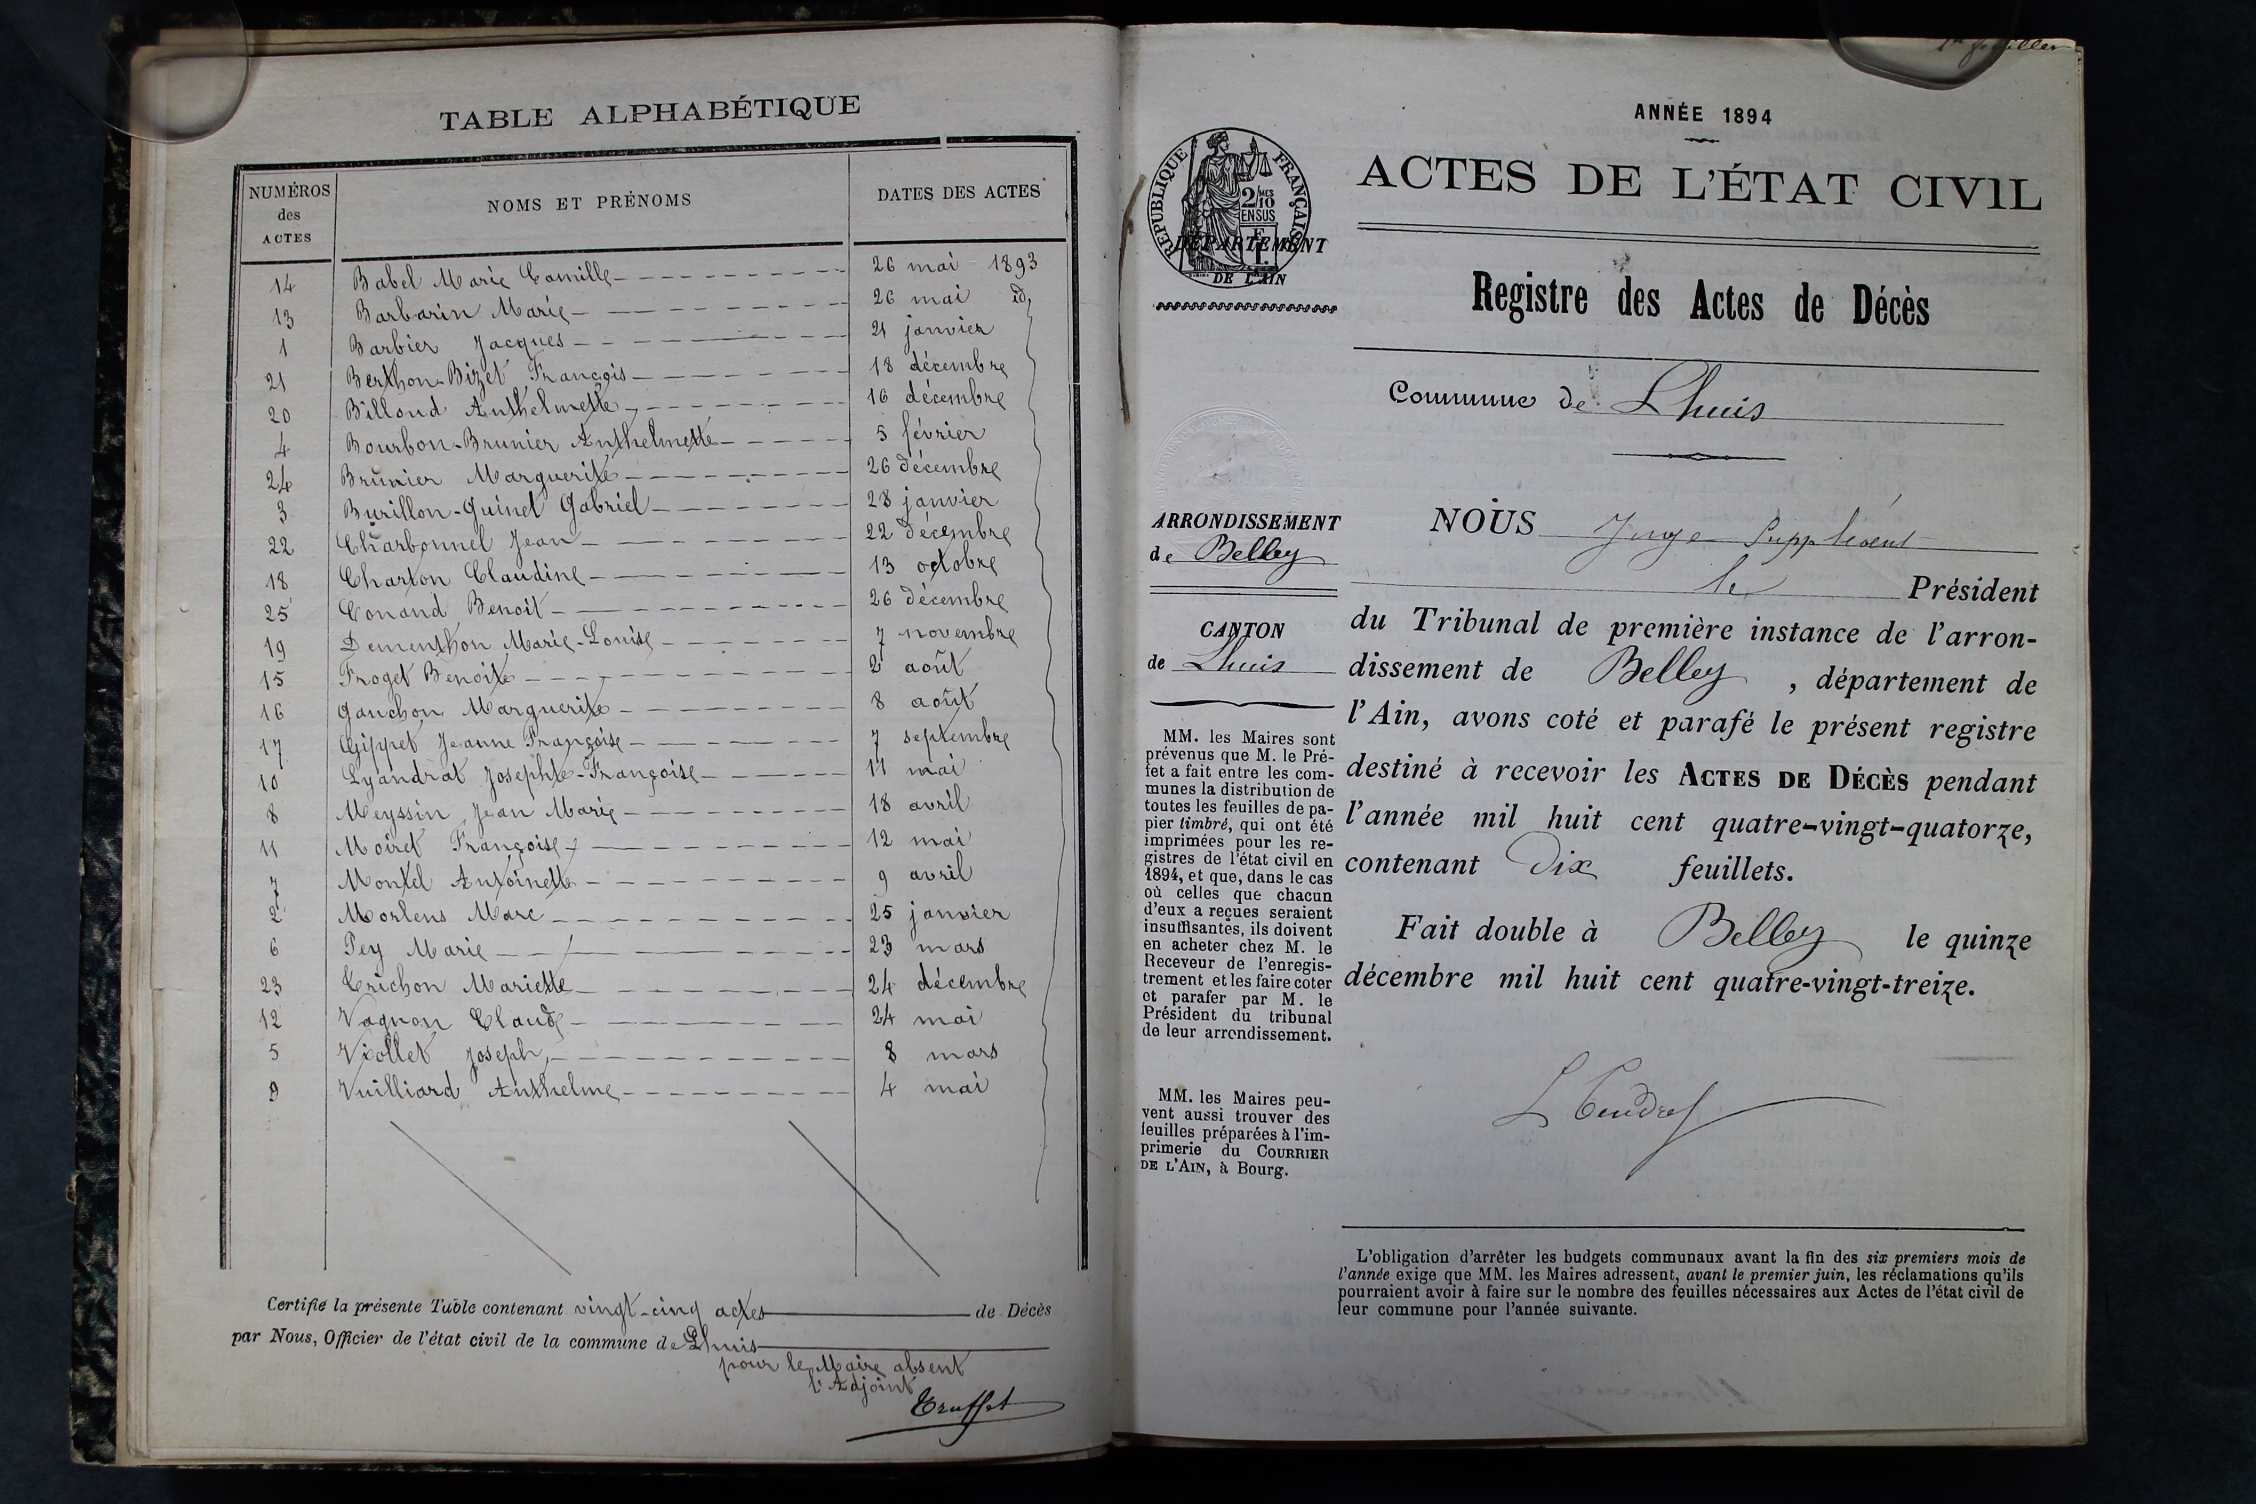 TABLE ALPHABÉTIQUE
NUMÉROS des ACTES NOMS ET PRÉNOMS DATES DES ACTES
14 Babel Marie Camille 26 mai 1893
13 Barbarin Marie 26 mai id
1 Barbier Jacques 21 janvier
21 Berthon-Bizet François 18 décembre
20 Billoud Anthelmette 16 décembre
4 Bourbon-Brunier Anthelmette 5 février
24 Brunier Marguerite 26 décembre
3 Burillon-Guinet Gabriel 28 janvier
22 Charbonnel Jean 22 décembre
18 Charton Claudine 13 octobre
25 Conand Benoit 26 décembre
19 Dementhon Marie-Louise 7 novembre
15 Froget Benoite 2 août
16 Gauchon Marguerite 8 août
17 Gippet Jeanne Françoise 7 septembre
10 Lyandrat Josephte-Françoise 11 mai
8 Meyssin Jean Marie 18 avril
11 Moiret Françoise 12 mai
7 Montel Antoinette 9 avril
2 Morlens Marc 25 janvier
6 Pey Marie 23 mars
23 Trichon Mariette 24 décembre
12 Vagnon Claude 24 mai
5 Viollet Joseph 8 mars
9 Vuilliard Anthelme 4 mai
Certifié la présente Table contenant vingt-cinq actes de Décès
par Nous, Officier de l'état civil de la commune de Lhuis
pour le Maire absent
l'Adjoint
Truffet
feuillet
ANNÉE 1894
ACTES DE L'ÉTAT CIVIL
RÉPUBLIQUE FRANÇAISE
2/10 MES
EN SUS
DÉPARTEMENT
DE L'AIN
Registre des Actes de Décès
Commune de Lhuis
ARRONDISSEMENT
de Belley
CANTON
de Lhuis
MM. les Maires sont
prévenus que M. le Pré-
fet a fait entre les com-
munes la distribution de
toutes les feuilles de pa-
pier timbré, qui ont été
imprimées pour les re-
gistres de l'état civil en
1894, et que, dans le cas
où celles que chacun
d'eux a reçues seraient
insuffisantes, ils doivent
en acheter chez M. le
Receveur de l'enregis-
trement et les faire coter
et parafer par M. le
Président du tribunal
de leur arrondissement.
MM. les Maires peu-
vent aussi trouver des
feuilles préparées à l'im-
primerie du COURRIER
DE L'AIN, à Bourg.
NOUS Juge Suppléant
le Président
du Tribunal de première instance de l'arron-
dissement de Belley , département de
l'Ain, avons coté et parafé le présent registre
destiné à recevoir les ACTES DE DÉCÈS pendant
l'année mil huit cent quatre-vingt-quatorze,
contenant Dix feuillets.
Fait double à Belley le quinze
décembre mil huit cent quatre-vingt-treize.
L'obligation d'arrêter les budgets communaux avant la fin des six premiers mois de
l'année exige que MM. les Maires adressent, avant le premier juin, les réclamations qu'ils
pourraient avoir à faire sur le nombre des feuilles nécessaires aux Actes de l'état civil de
leur commune pour l'année suivante.